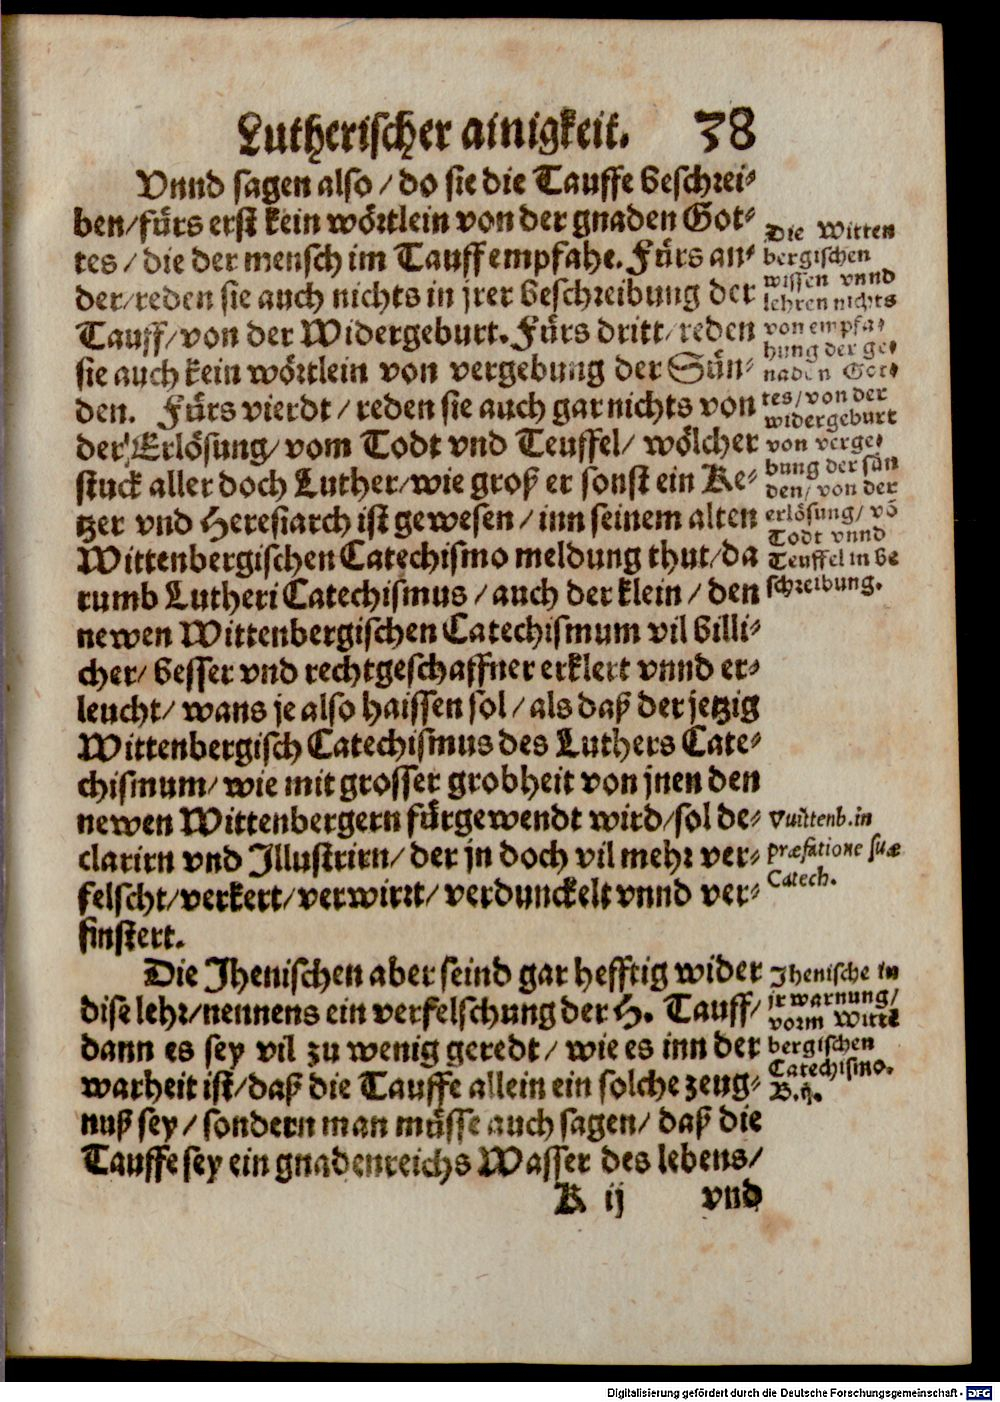 Lutherischer ainigkeit. 38
Vnnd sagen also / do sie die Tauffe beschrei⸗
ben/fürs erst kein wörtlein von der gnaden Got⸗
tes / die der mensch im Tauff empfahe. Fürs an⸗
der/reden sie auch nichts in jrer beschreibung der
Tauff/von der Widergeburt. Fürs dritt/reden
sie auch kein wörtlein von vergebung der Sün⸗
den. Fürs vierdt / reden sie auch gar nichts von
der Erlösung/ vom Todt vnd Teuffel/ wölcher
stuck aller doch Luther/wie groß er sonst ein Ke⸗
tzer vnd Heresiarch ist gewesen / inn seinem alten
Wittenbergischen Catechismo meldung thut/da
rumb Lutheri Catechismus / auch der klein / den
newen Wittenbergischen Catechismum vil billi⸗
cher/ besser vnd rechtgeschaffner erklert vnnd er⸗
leucht/ wans je also haissen sol / als daß der jetzig
Wittenbergisch Catechismus des Luthers Cate⸗
chismum/ wie mit grosser grobheit von jnen den
newen Wittenbergern fürgewendt wird/sol de⸗
clarirn vnd Illustrirn/ der jn doch vil mehr ver⸗
felscht/verkert/verwirrt/ verdunckelt vnnd ver⸗
finstert.
Die Jhenischen aber seind gar hefftig wider
dise lehr/nennens ein verfelschung der H. Tauff/
dann es sey vil zu wenig geredt/ wie es inn der
warheit ist/daß die Tauffe allein ein solche zeug⸗
nuß sey / sondern man müsse auch sagen/ daß die
Tauffe sey ein gnadenreichs Wasser des lebens/
K ij vnd
Die Witten
bergischen
wissen vnnd
lehren nichts
von empfa⸗
hung der ge⸗
naden Got⸗
tes/von der
widergeburt
von verge⸗
bung der sün
den/von der
erlösung/võ
Todt vnnd
Teuffel in be
schreibung.
Vuittenb. in
præfatione suæ
Catech.
Jhenische in
jr warnung/
vorm Witte
bergischen
Catechismo.
B. ij.
Digitalisierung gefördert durch die Deutsche Forschungsgemeinschaft - DFG